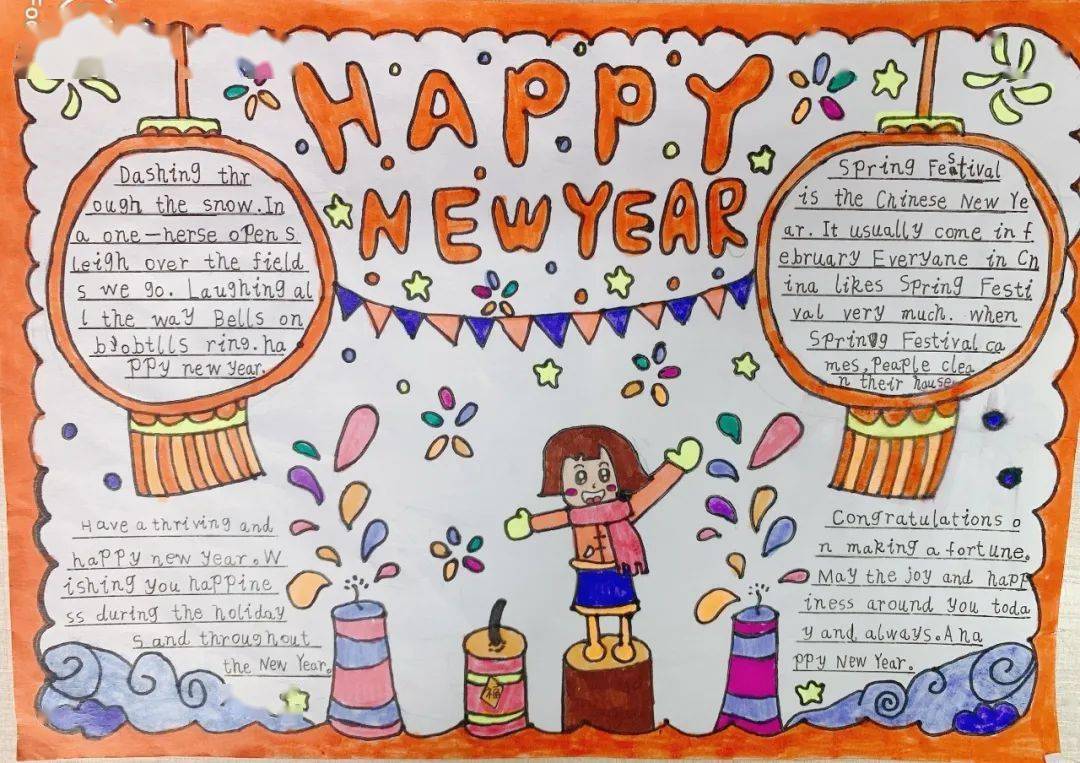 HAPPY
NEW YEAR
Dashing thr
ough the snow.In
a one-herse open s
leigh over the field
s we go. Laughing al
l the way Bells on
ring.ha
ppy new year.
Spring Festival
is the Chinese New Ye
ar.It usually come in f
ebruary Everyane in Ch
ina likes Spring Festi
val very much. when
Spring Festival ca
mes,Peaple clea
n their house
Have a thriving and
happy new year.W
ishing you happine
ss during the holiday
s and throughout
the New Year.
福
Congratulations o
n making a fortune.
May the joy and happ
iness around you toda
y and always.A ha
ppy New Year.